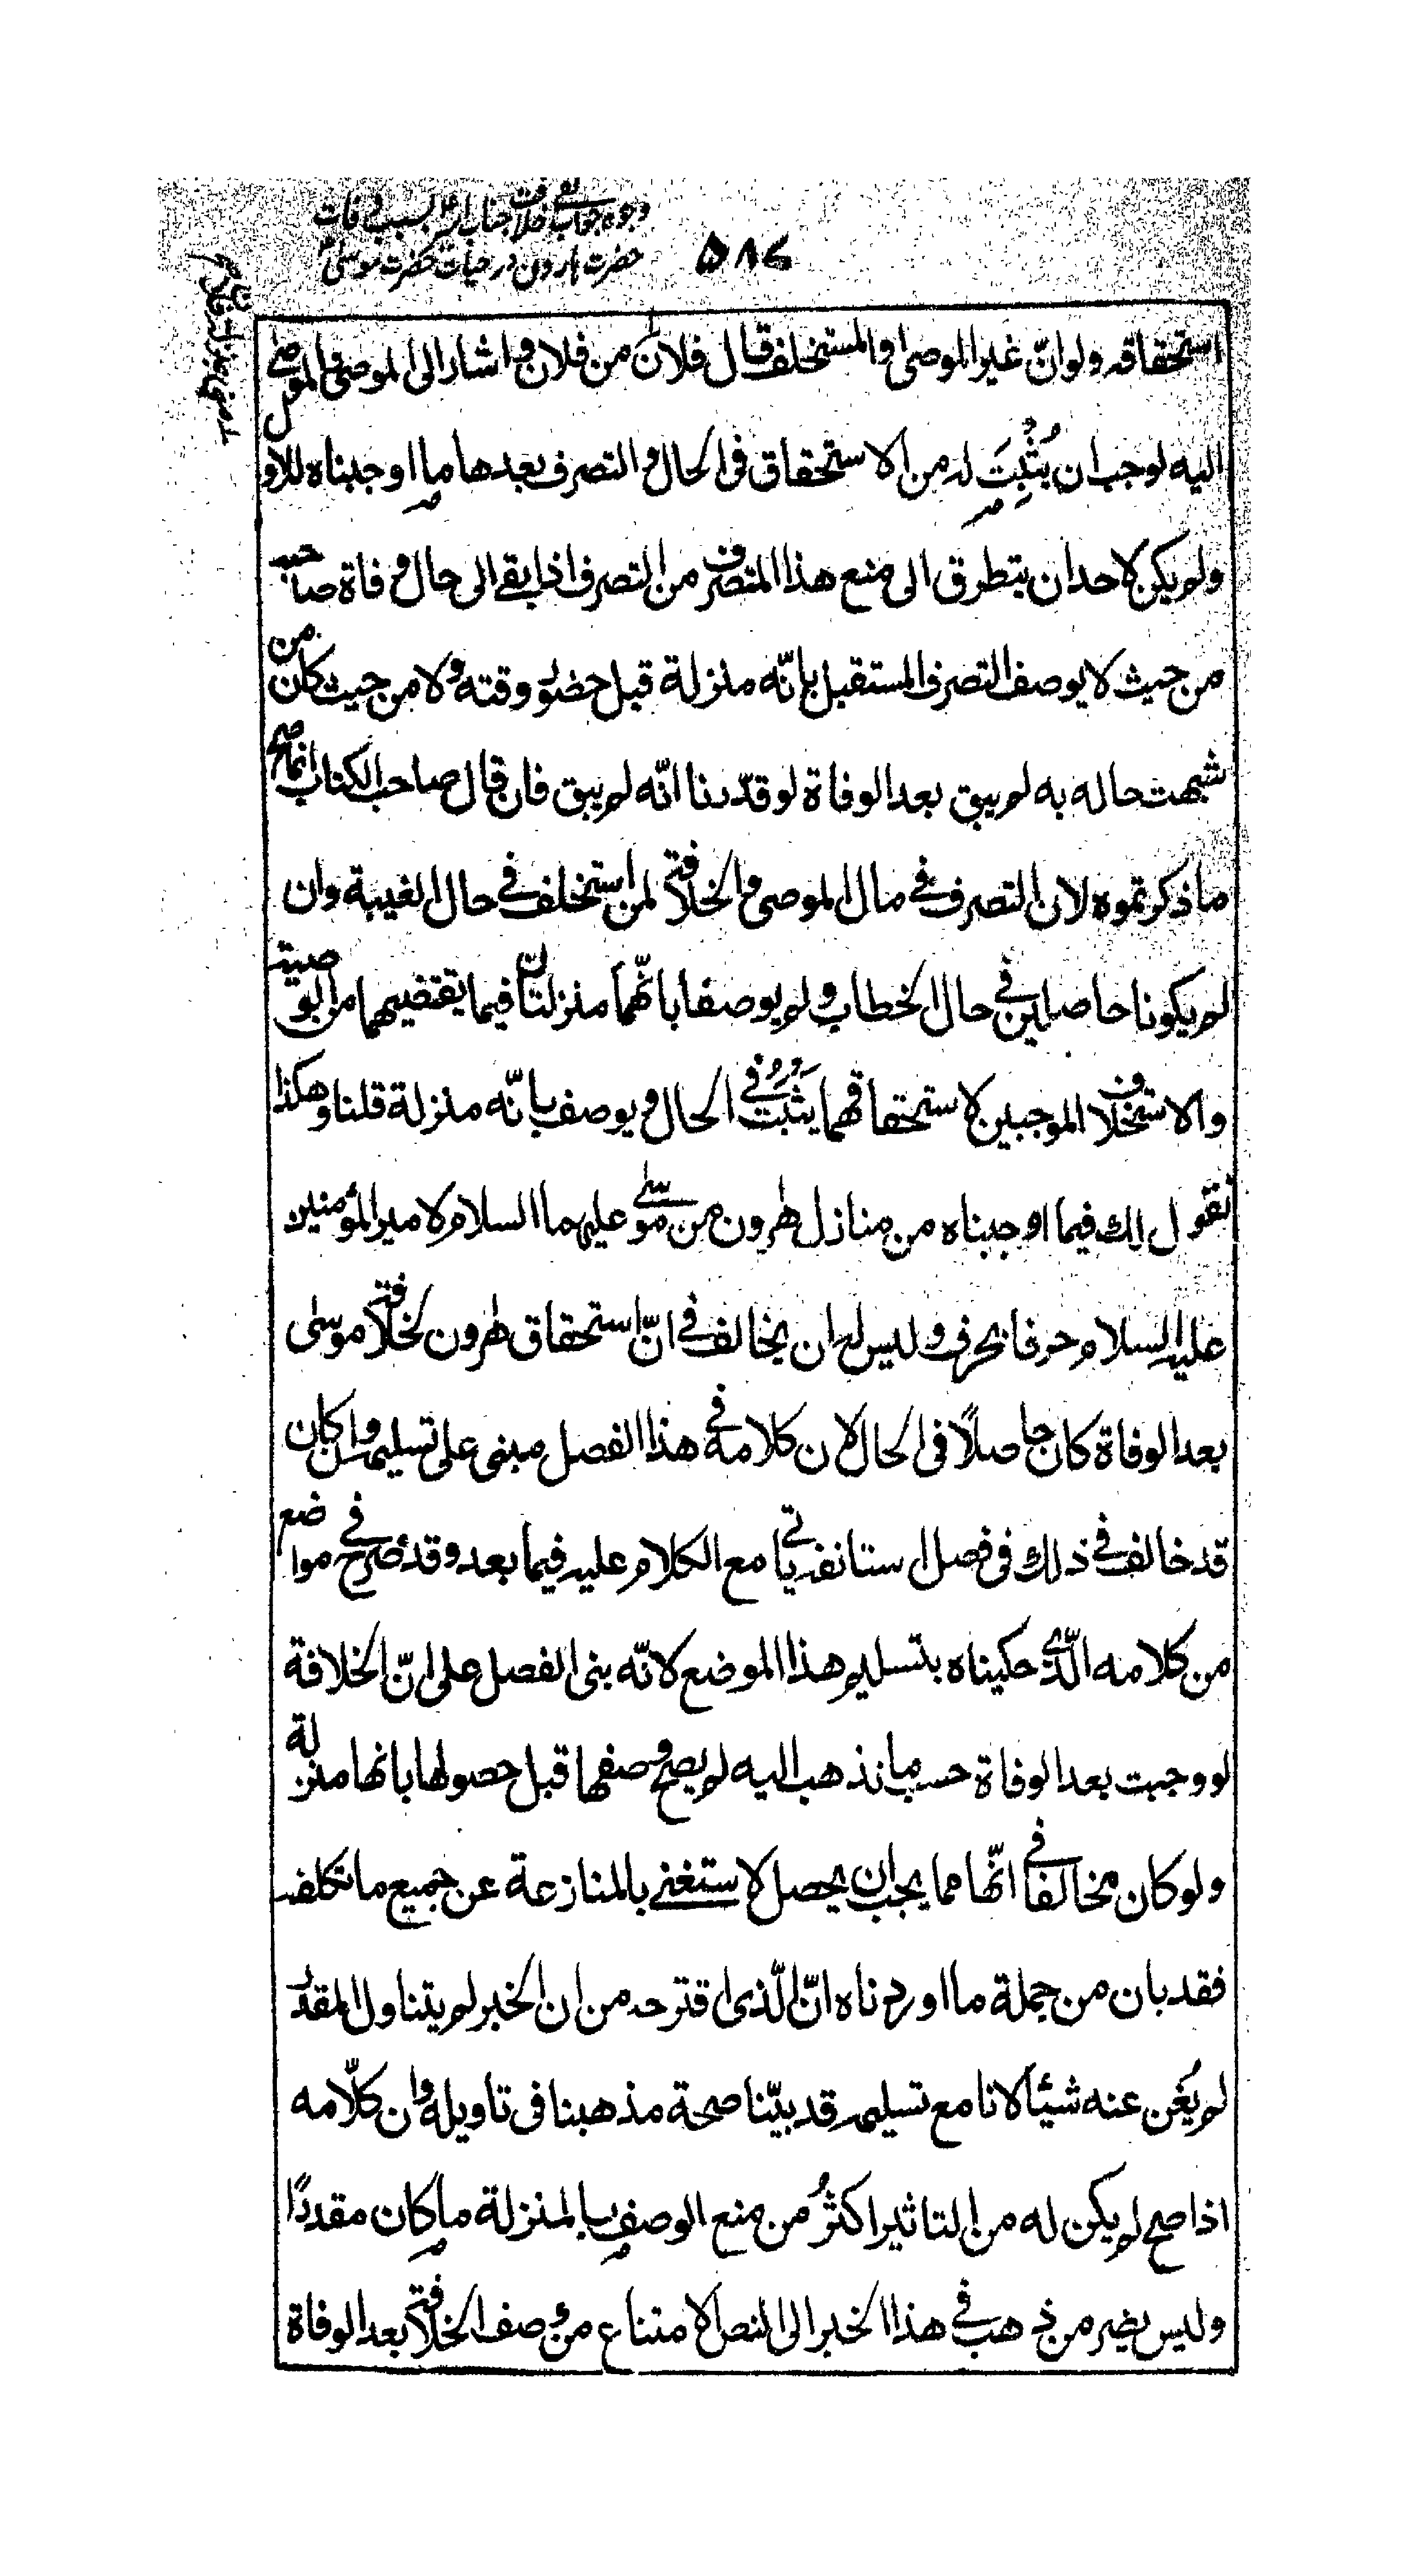 وجوه جواب نفی خلافت جناب امیر بسبب وفات
حضرت هارون در حیات حضرت موسی
۵۸۶
استحقاقه ولو انّ غير الموصى او المستخلف قال فلان من فلان و اشار الى الموصى والموصى
اليه لوجب ان يُثبِتَ له من الاستحقاق فى الحال و التصرف بعدها ما اوجبناه للاول
ولم يكن لاحد ان يتطرق الى منع هذا المتصرف من التصرف اذا بقى الى حال وفاة صاحبه
من حيث لا يوصف التصرف المستقبل بانّه منزلة قبل حضور وقته ولا من حيث كان من
شبهت حاله به لم يبق بعد الوفاة لو قدّرنا انّه لم يبق فان قال صاحب الكتاب انما صح
ما ذكرتموه لان التصرف فى مال الموصى و الخلافة لمن استخلف فى حال الغيبة وان
لم يكونا حاصلين فى حال الخطاب و لم يوصفا بانّهما منزلتان فيما يقتضيهما من الوصية
والاستخلاف الموجبين لاستحقاقهما يَثبُتُ فى الحال و يوصف بانّه منزلة قلنا وهكذا
نقول لك فيما اوجبناه من منازل هرون من موسى عليهما السلام لامير المؤمنين
عليه السلام حرفا بحرف و ليس له ان يخالف فى انّ استحقاق هرون لخلافة موسى
بعد الوفاة كان حاصلاً فى الحال لان كلامه فى هذا الفصل مبنى على تسليمه وان كان
قد خالف فى ذلك فى فصل استانفه ياتى مع الكلام عليه فيما بعد وقد صرح فى مواضع
من كلامه الّذى حكيناه بتسليم هذا الموضع لانّه بنى الفصل على انّ الخلافة
لو وجبت بعد الوفاة حسب ما نذهب اليه لم يصح وصفها قبل حصولها بانها منزلة
ولو كان مخالفا فى انّها مما يجب ان يحصل لاستغنى بالمنازعة عن جميع ما تكلفه
فقد بان من جملة ما اوردناه انّ الّذى اقترحه من ان الخبر لم يتناول المقدر
لم يُغن عنه شيئا لانا مع تسليمه قد بيّنا صحة مذهبنا فى تاويله وان كلامه
اذا صح لم يكن له من التاثير اكثرُ من منع الوصف بالمنزلة ما كان مقدرًا
و ليس يضير من ذهب فى هذا الخبر الى النص الامتناع من وصف الخلافة بعد الوفاة